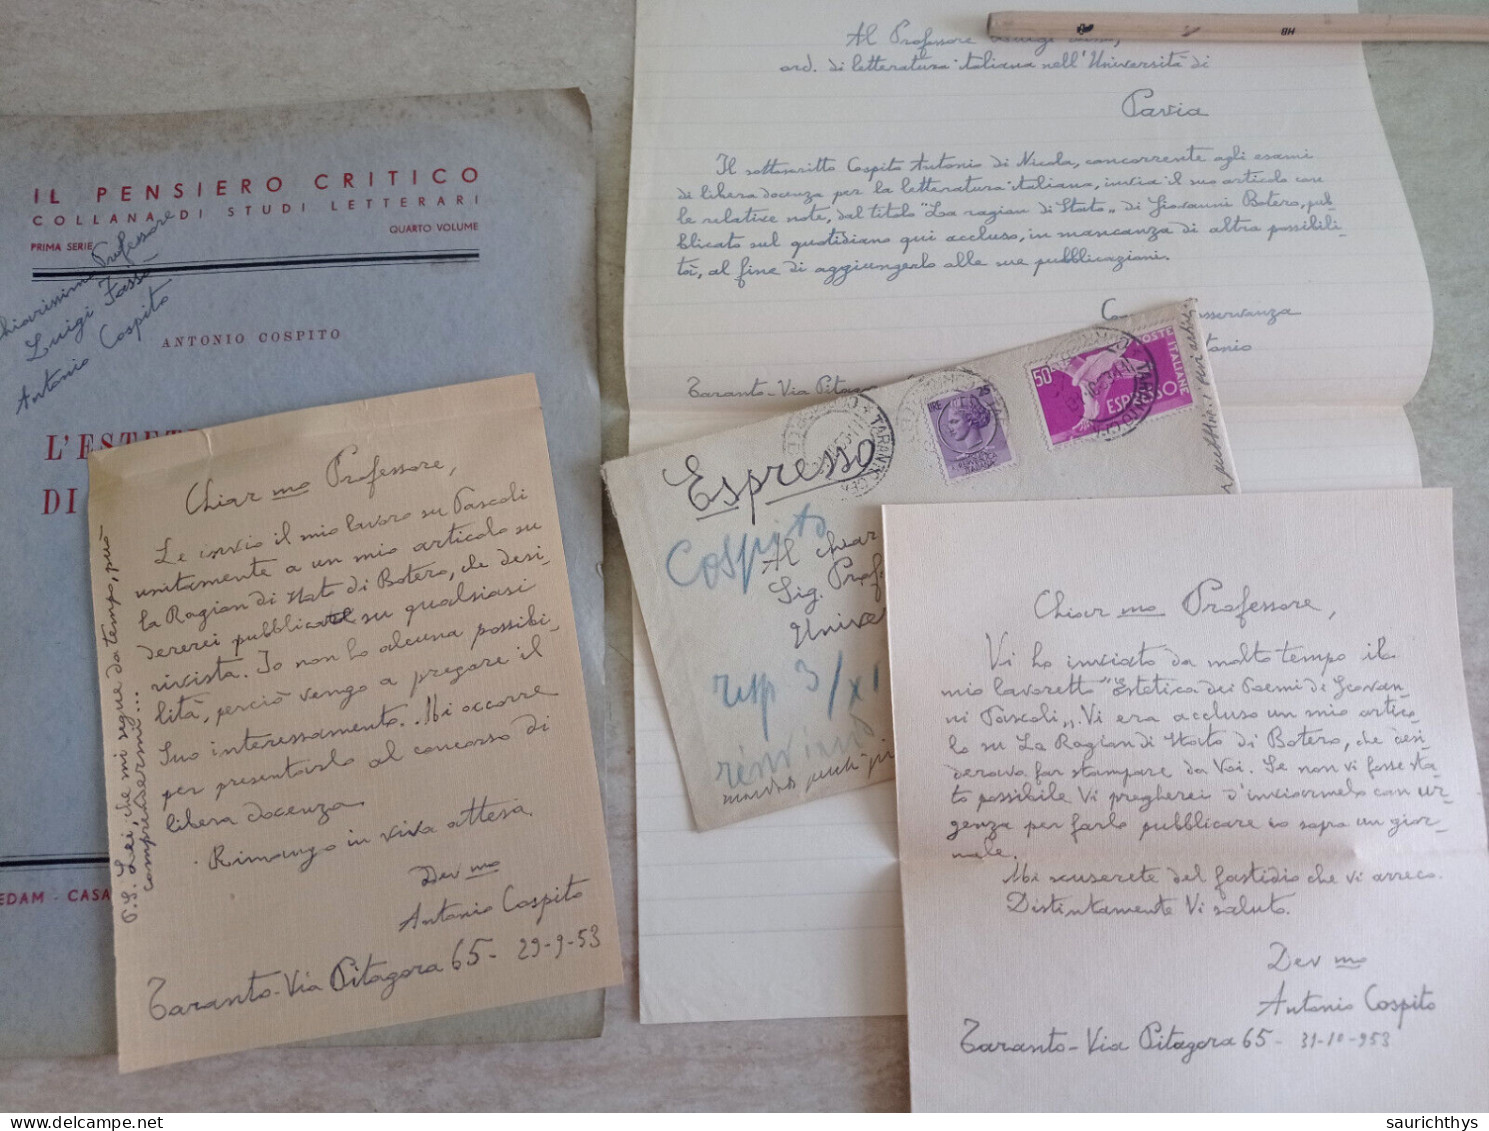 IL PENSIERO CRITICO
COLLANA DI STUDI LETTERARI
PRIMA SERIE
QUARTO VOLUME
Chiarissimo Professore
Luigi Fassò
Antonio Cospito
ANTONIO COSPITO
L'ESTETI
DI
EDAM - CASA
Chiar mo Professore,
Le invio il mio lavoro su Pascoli
unitamente a un mio articolo su
la Ragion di Stato di Botero, che desi-
dererei pubblicare su qualsiasi
rivista. Io non ho alcuna possibi-
lità, perciò vengo a pregare il
Suo interessamento. Mi occorre
per presentarlo al concorso di
libera docenza.
Rimango in viva attesa.
Dev mo
Antonio Cospito
Taranto - Via Pitagora 65 - 29-9-53
P.S. Lei, che mi segue da tempo, può
comprendermi...
Al Professore Luigi
ord. di letteratura italiana nell'Università di
Pavia
Il sottoscritto Cospito Antonio di Nicola, concorrente agli esami
di libera docenza per la letteratura italiana, invia il suo articolo con
le relative note, dal titolo "La ragion di Stato" di Giovanni Botero, pub-
blicato sul quotidiano qui accluso, in mancanza di altra possibili-
tà, al fine di aggiungerlo alle sue pubblicazioni.
Con osservanza
Antonio
Taranto - Via Pitagora
HB
Espresso
LIRE 25
50
POSTE ITALIANE
ESPRESSO
TARANTO
Cospito
Al Chiar
Sig. Prof
Unive
risp 3/XI
Chiar mo Professore,
Vi ho inviato da molto tempo il
mio lavoretto "Estetica dei Poemi di Giovan-
ni Pascoli". Vi era accluso un mio artico-
lo su La Ragion di Stato di Botero, che desi-
deravo far stampare da Voi. Se non vi fosse sta-
to possibile Vi pregherei d'inviarmelo con ur-
genza per farlo pubblicare io sopra un gior-
nale.
Mi scuserete del fastidio che vi arreco.
Distintamente Vi saluto.
Dev mo
Antonio Cospito
Taranto - Via Pitagora 65 - 31-10-953
saurichthys